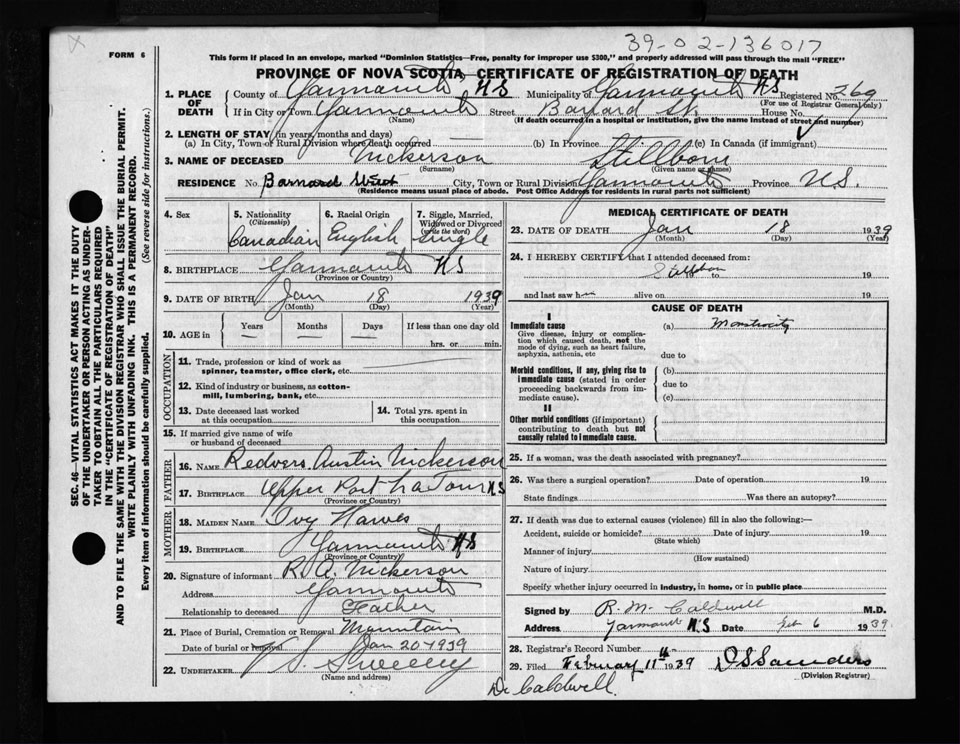 39-02-136017
FORM 6
This form if placed in an envelope, marked "Dominion Statistics—Free, penalty for improper use $300," and properly addressed will pass through the mail "FREE"
PROVINCE OF NOVA SCOTIA, CERTIFICATE OF REGISTRATION OF DEATH
1. PLACE OF DEATH County of Yarmouth N S Municipality of Yarmouth N S Registered No. 269
(For use of Registrar General only)
If in City or Town Yarmouth Street St. House No.
(Name) (If death occurred in a hospital or institution, give the name instead of street and number)
2. LENGTH OF STAY (in years, months and days)
(a) In City, Town or Rural Division where death occurred (b) In Province (c) In Canada (if immigrant)
3. NAME OF DECEASED Nickerson Stillborn
(Surname) (Given name or names)
RESIDENCE No. Barnard Street City, Town or Rural Division Yarmouth Province N.S.
(Residence means usual place of abode. Post Office Address for residents in rural parts not sufficient)
SEC. 46—VITAL STATISTICS ACT MAKES IT THE DUTY
OF THE UNDERTAKER OR PERSON ACTING AS UNDER-
TAKER TO OBTAIN ALL THE PARTICULARS REQUIRED
IN THE "CERTIFICATE OF REGISTRATION OF DEATH"
AND TO FILE THE SAME WITH THE DIVISION REGISTRAR WHO SHALL ISSUE THE BURIAL PERMIT.
WRITE PLAINLY WITH UNFADING INK. THIS IS A PERMANENT RECORD.
Every item of information should be carefully supplied. (See reverse side for instructions.)
4. Sex 5. Nationality (Citizenship) 6. Racial Origin 7. Single, Married, Widowed or Divorced (write the word)
Canadian English Single
8. BIRTHPLACE Yarmouth N S
(Province or Country)
9. DATE OF BIRTH Jan 18 1939
(Month) (Day) (Year)
10. AGE in Years Months Days If less than one day old
hrs. or min.
OCCUPATION
11. Trade, profession or kind of work as
spinner, teamster, office clerk, etc.
12. Kind of industry or business, as cotton-
mill, lumbering, bank, etc.
13. Date deceased last worked
at this occupation
14. Total yrs. spent in
this occupation
15. If married give name of wife
or husband of deceased
FATHER
16. NAME Redvers Austin Nickerson
17. BIRTHPLACE Upper Port La Tour N S
(Province or Country)
MOTHER
18. MAIDEN NAME Ivy Hawes
19. BIRTHPLACE Yarmouth N S
(Province or Country)
20. Signature of informant R. A. Nickerson
Address Yarmouth
Relationship to deceased Father
21. Place of Burial, Cremation or Removal Mountain
Date of burial or removal Jan 20 1939
22. UNDERTAKER S. Sweeney
(Name and address)
MEDICAL CERTIFICATE OF DEATH
23. DATE OF DEATH Jan 18 1939
(Month) (Day) (Year)
24. I HEREBY CERTIFY that I attended deceased from:
Stillborn 19 to 19
and last saw h alive on 19
CAUSE OF DEATH
I
Immediate cause (a) Monstrosity
Give disease, injury or complica-
tion which caused death, not the
mode of dying, such as heart failure,
asphyxia, asthenia, etc
due to
Morbid conditions, if any, giving rise to (b)
immediate cause (stated in order due to
proceeding backwards from im-
mediate cause). (c)
II
Other morbid conditions (if important)
contributing to death but not
causally related to immediate cause.
25. If a woman, was the death associated with pregnancy?
26. Was there a surgical operation? Date of operation 19
State findings Was there an autopsy?
27. If death was due to external causes (violence) fill in also the following:—
Accident, suicide or homicide? Date of injury 19
(State which)
Manner of injury
(How sustained)
Nature of injury
Specify whether injury occurred in industry, in home, or in public place
Signed by R. M. Caldwell M.D.
Address Yarmouth N.S Date Feb 6 1939.
28. Registrar's Record Number
29. Filed February 11th 1939 D S Saunders
(Division Registrar)
Dr Caldwell.